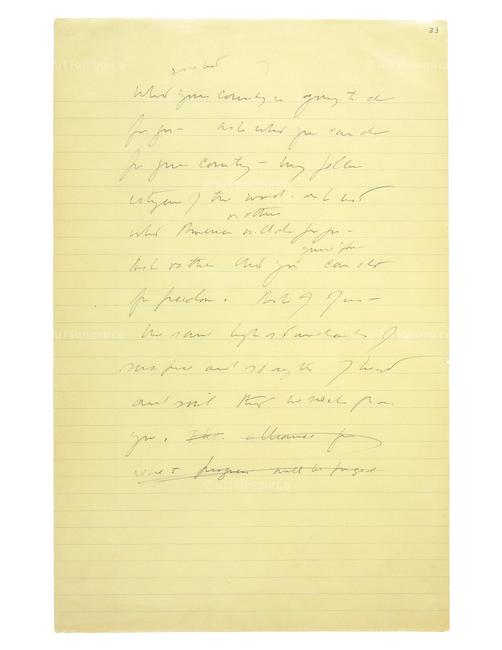 33
ask not
what your country is going to do
for you - ask what you can do
for your country - my fellow
citizens of the world - ask not
or others
what America will do for you -
ask rather what you can do
for freedom. Ask of us -
the same high standards of
sacrifice and strength of heart
and will that we seek from
you.